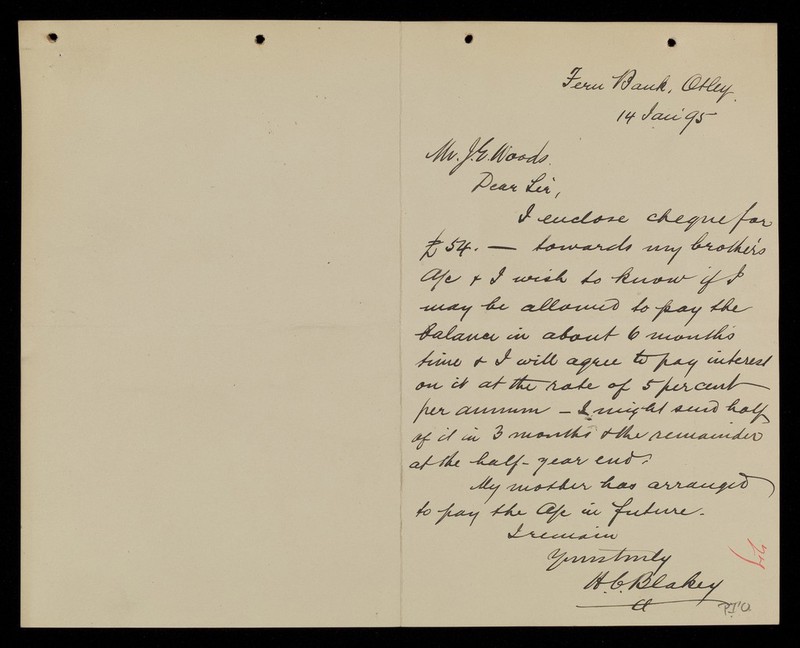 Fern Bank, Otley.
14 Jan' 95
Mr. J. E. Woods.
Dear Sir,
I enclose cheque for
£54. — towards my brother's
A/c & I wish to know if I
may be allowed to pay the
balance in about 6 months
time & I will agree to pay interest
on it at the rate of 5 per cent
per annum — I might send half
of it in 3 months & the remainder
at the half-year end.
My mother has arranged
to pay the A/c in future.
I remain
Yours truly
H. C. Blakey
P.T.O